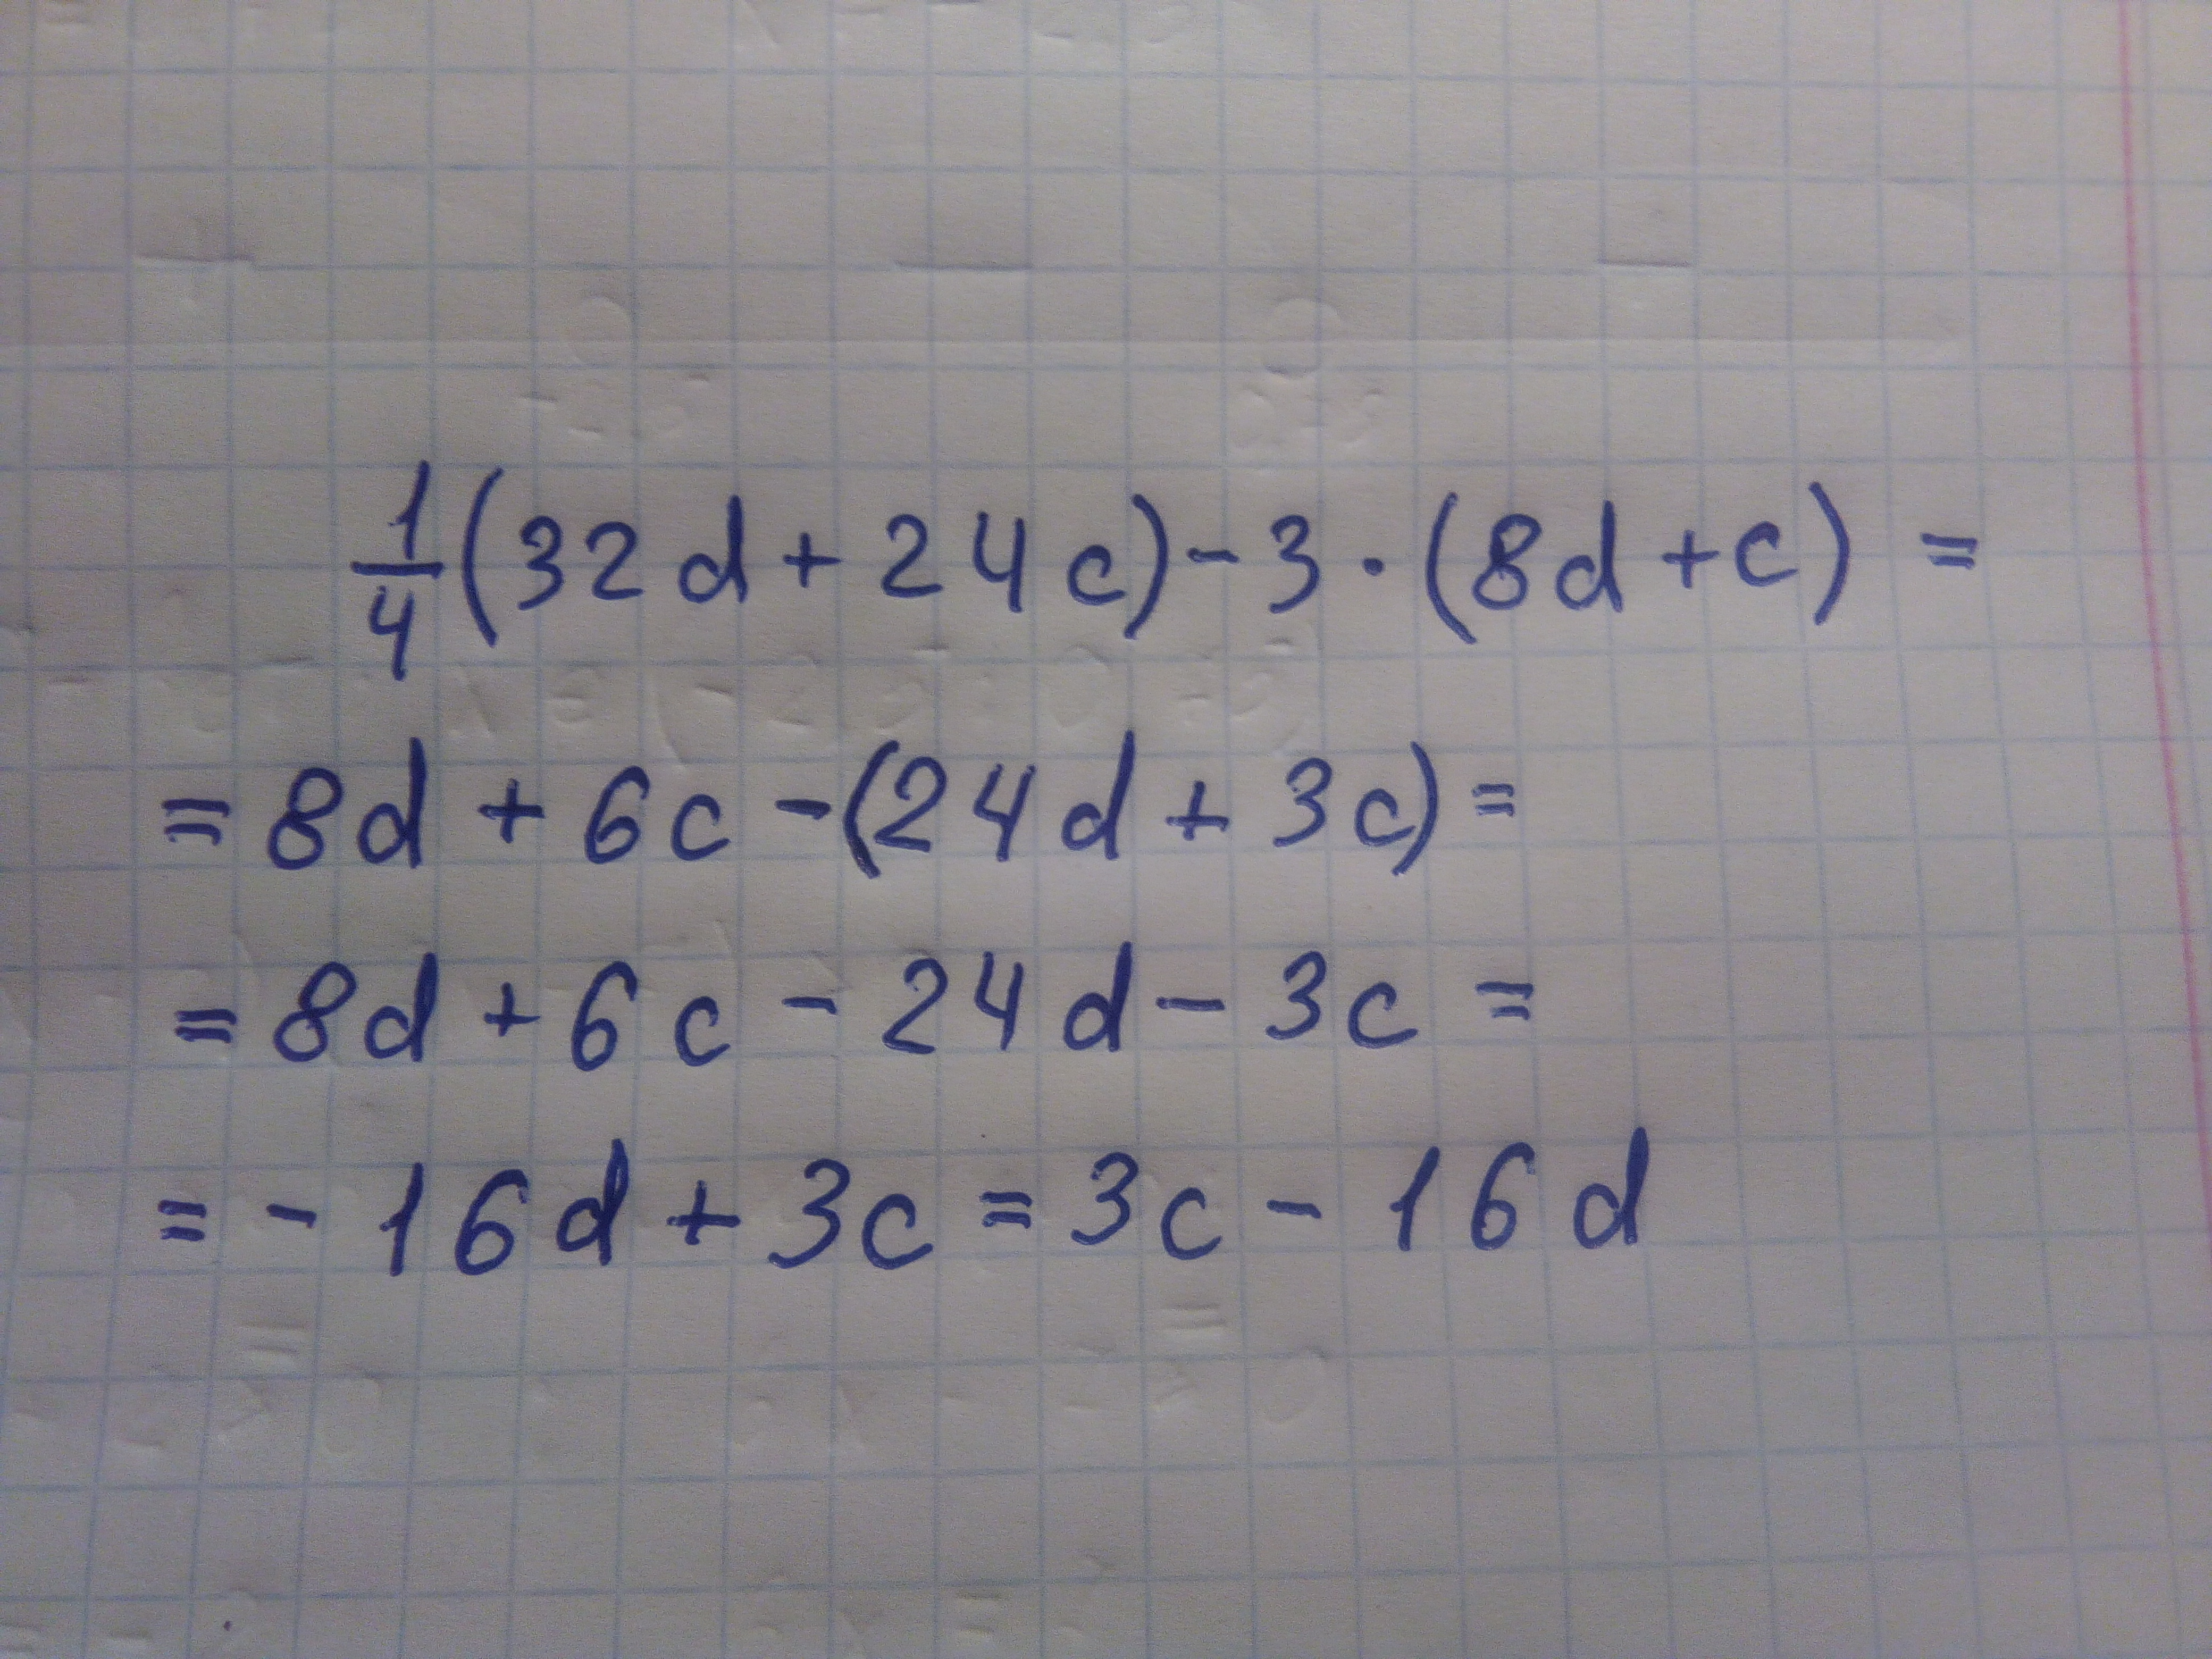 1/4(32d + 24c) - 3 · (8d + c) =
= 8d + 6c - (24d + 3c) =
= 8d + 6c - 24d - 3c =
= - 16d + 3c = 3c - 16d